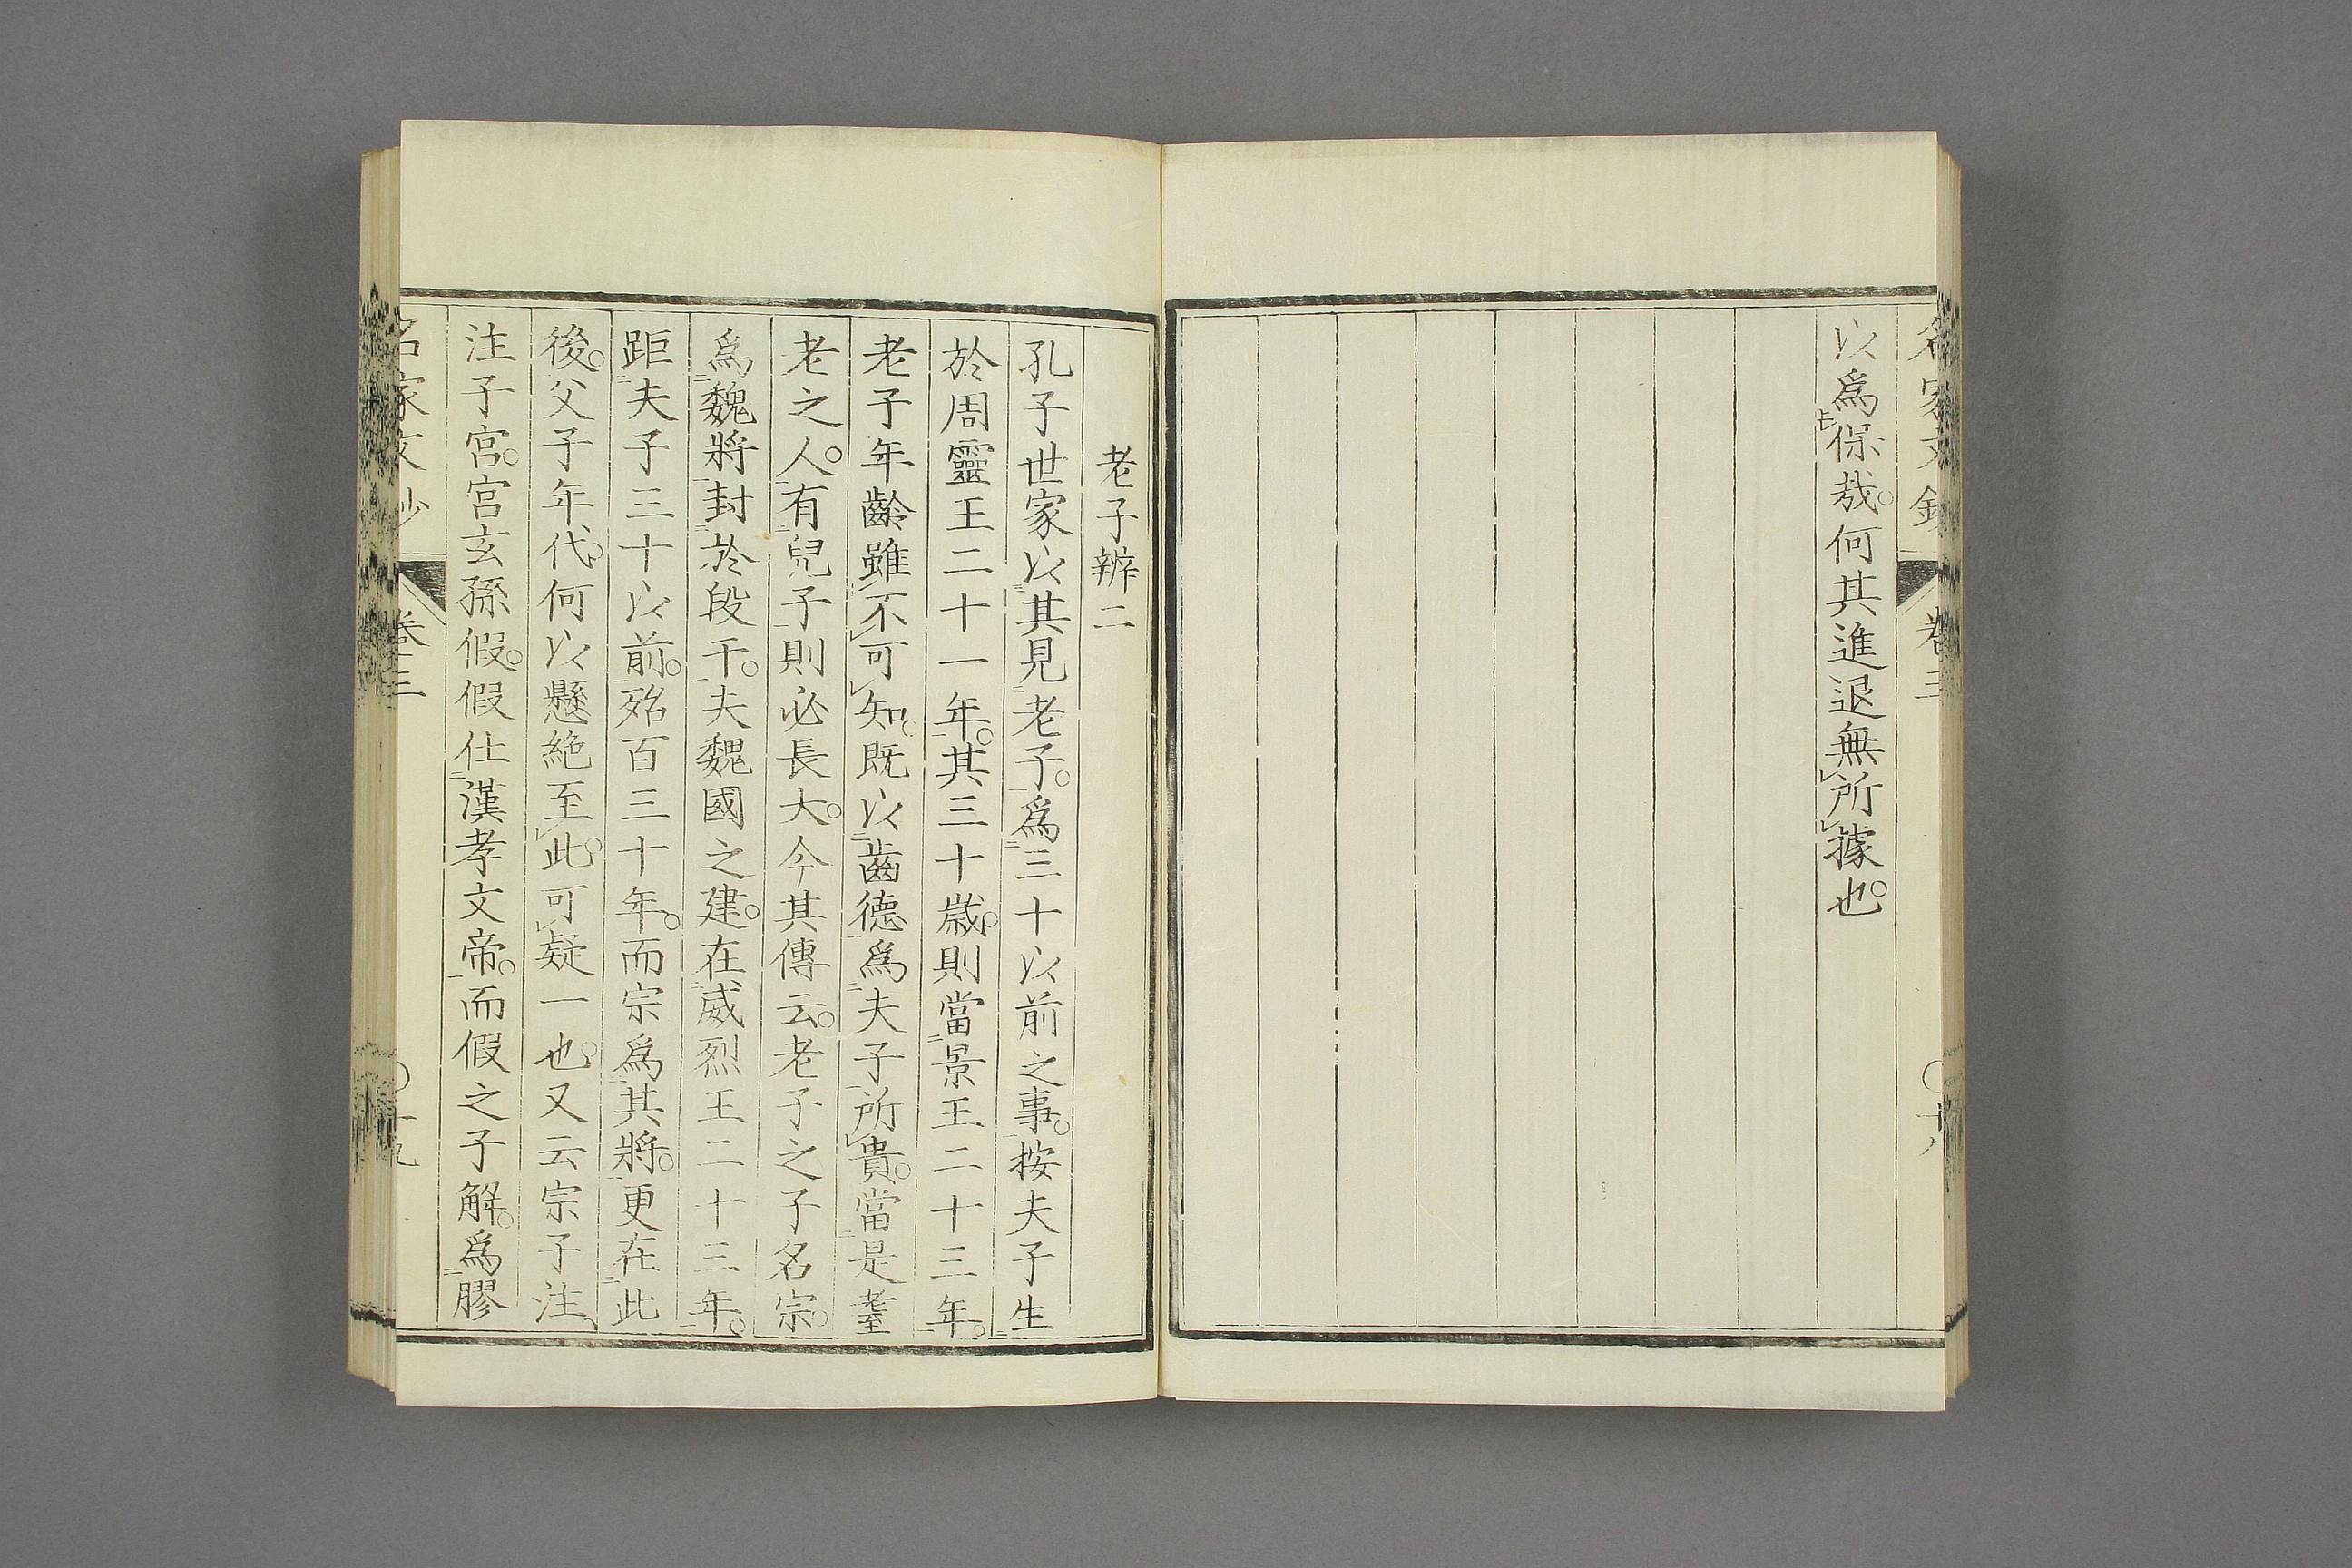 名家文鈔 卷三 〇十八
以爲保哉何其進退無所據也
老子辨二
孔子世家以其見老子爲三十以前之事按夫子生
於周靈王二十一年其三十歲則當景王二十三年
老子年齡雖不可知既以齒德爲夫子所貴當是耋
老之人有兒子則必長大今其傳云老子之子名宗
爲魏將封於段干夫魏國之建在威烈王二十三年
距夫子三十以前殆百三十年而宗爲其將更在此
後父子年代何以懸絶至此可疑一也又云宗子注
注子宮宮玄孫假假仕漢孝文帝而假之子解爲膠
名家文鈔 卷三 〇十九